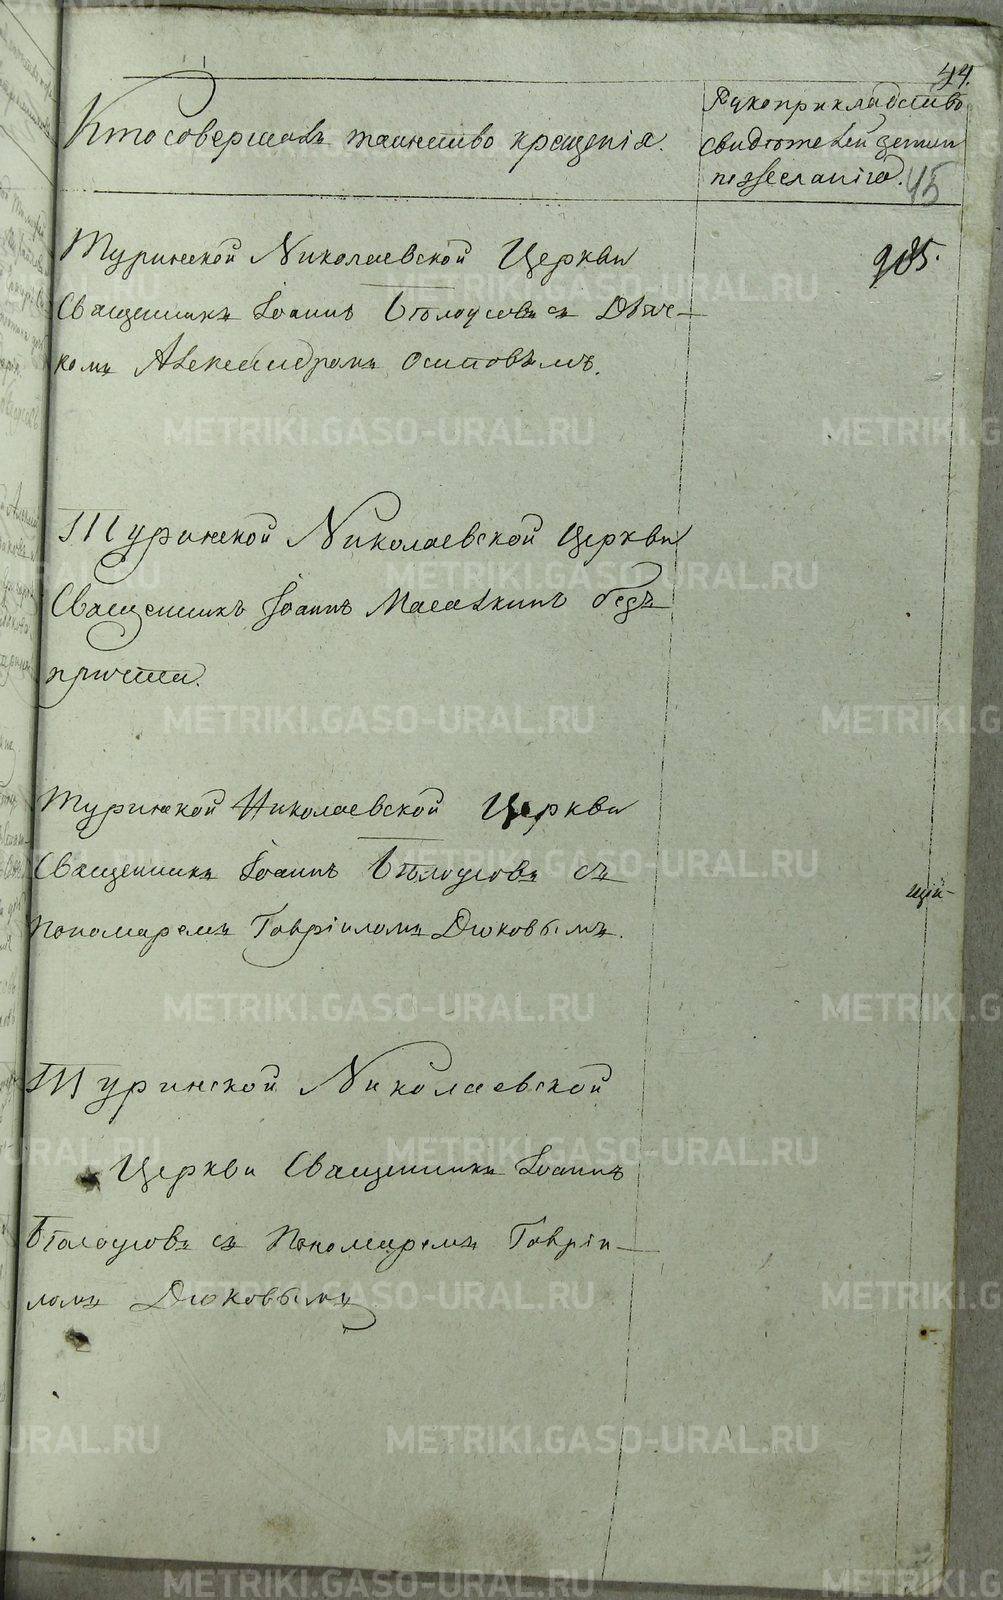 44.
Кто совершалъ таинство крещенія.
Рукоприкладство
свидѣтелей записи
по желанію.
45
Туринской Николаевской Церкви
985.
Священникъ Іоаннъ Бѣлоусовъ съ Дьяч-
комъ Александромъ Осиповымъ.
Туринской Николаевской Церкви
Священникъ Іоаннъ безъ
причта.
Туринской Николаевской Церкви
Священникъ Іоаннъ Бѣлоусовъ съ
щій-
Пономаремъ Гавріиломъ Дюковымъ.
Туринской Николаевской
Церкви Священникъ Іоаннъ
Бѣлоусовъ съ Пономаремъ Гавріи-
ломъ Дюковымъ
METRIKI.GASO-URAL.RU